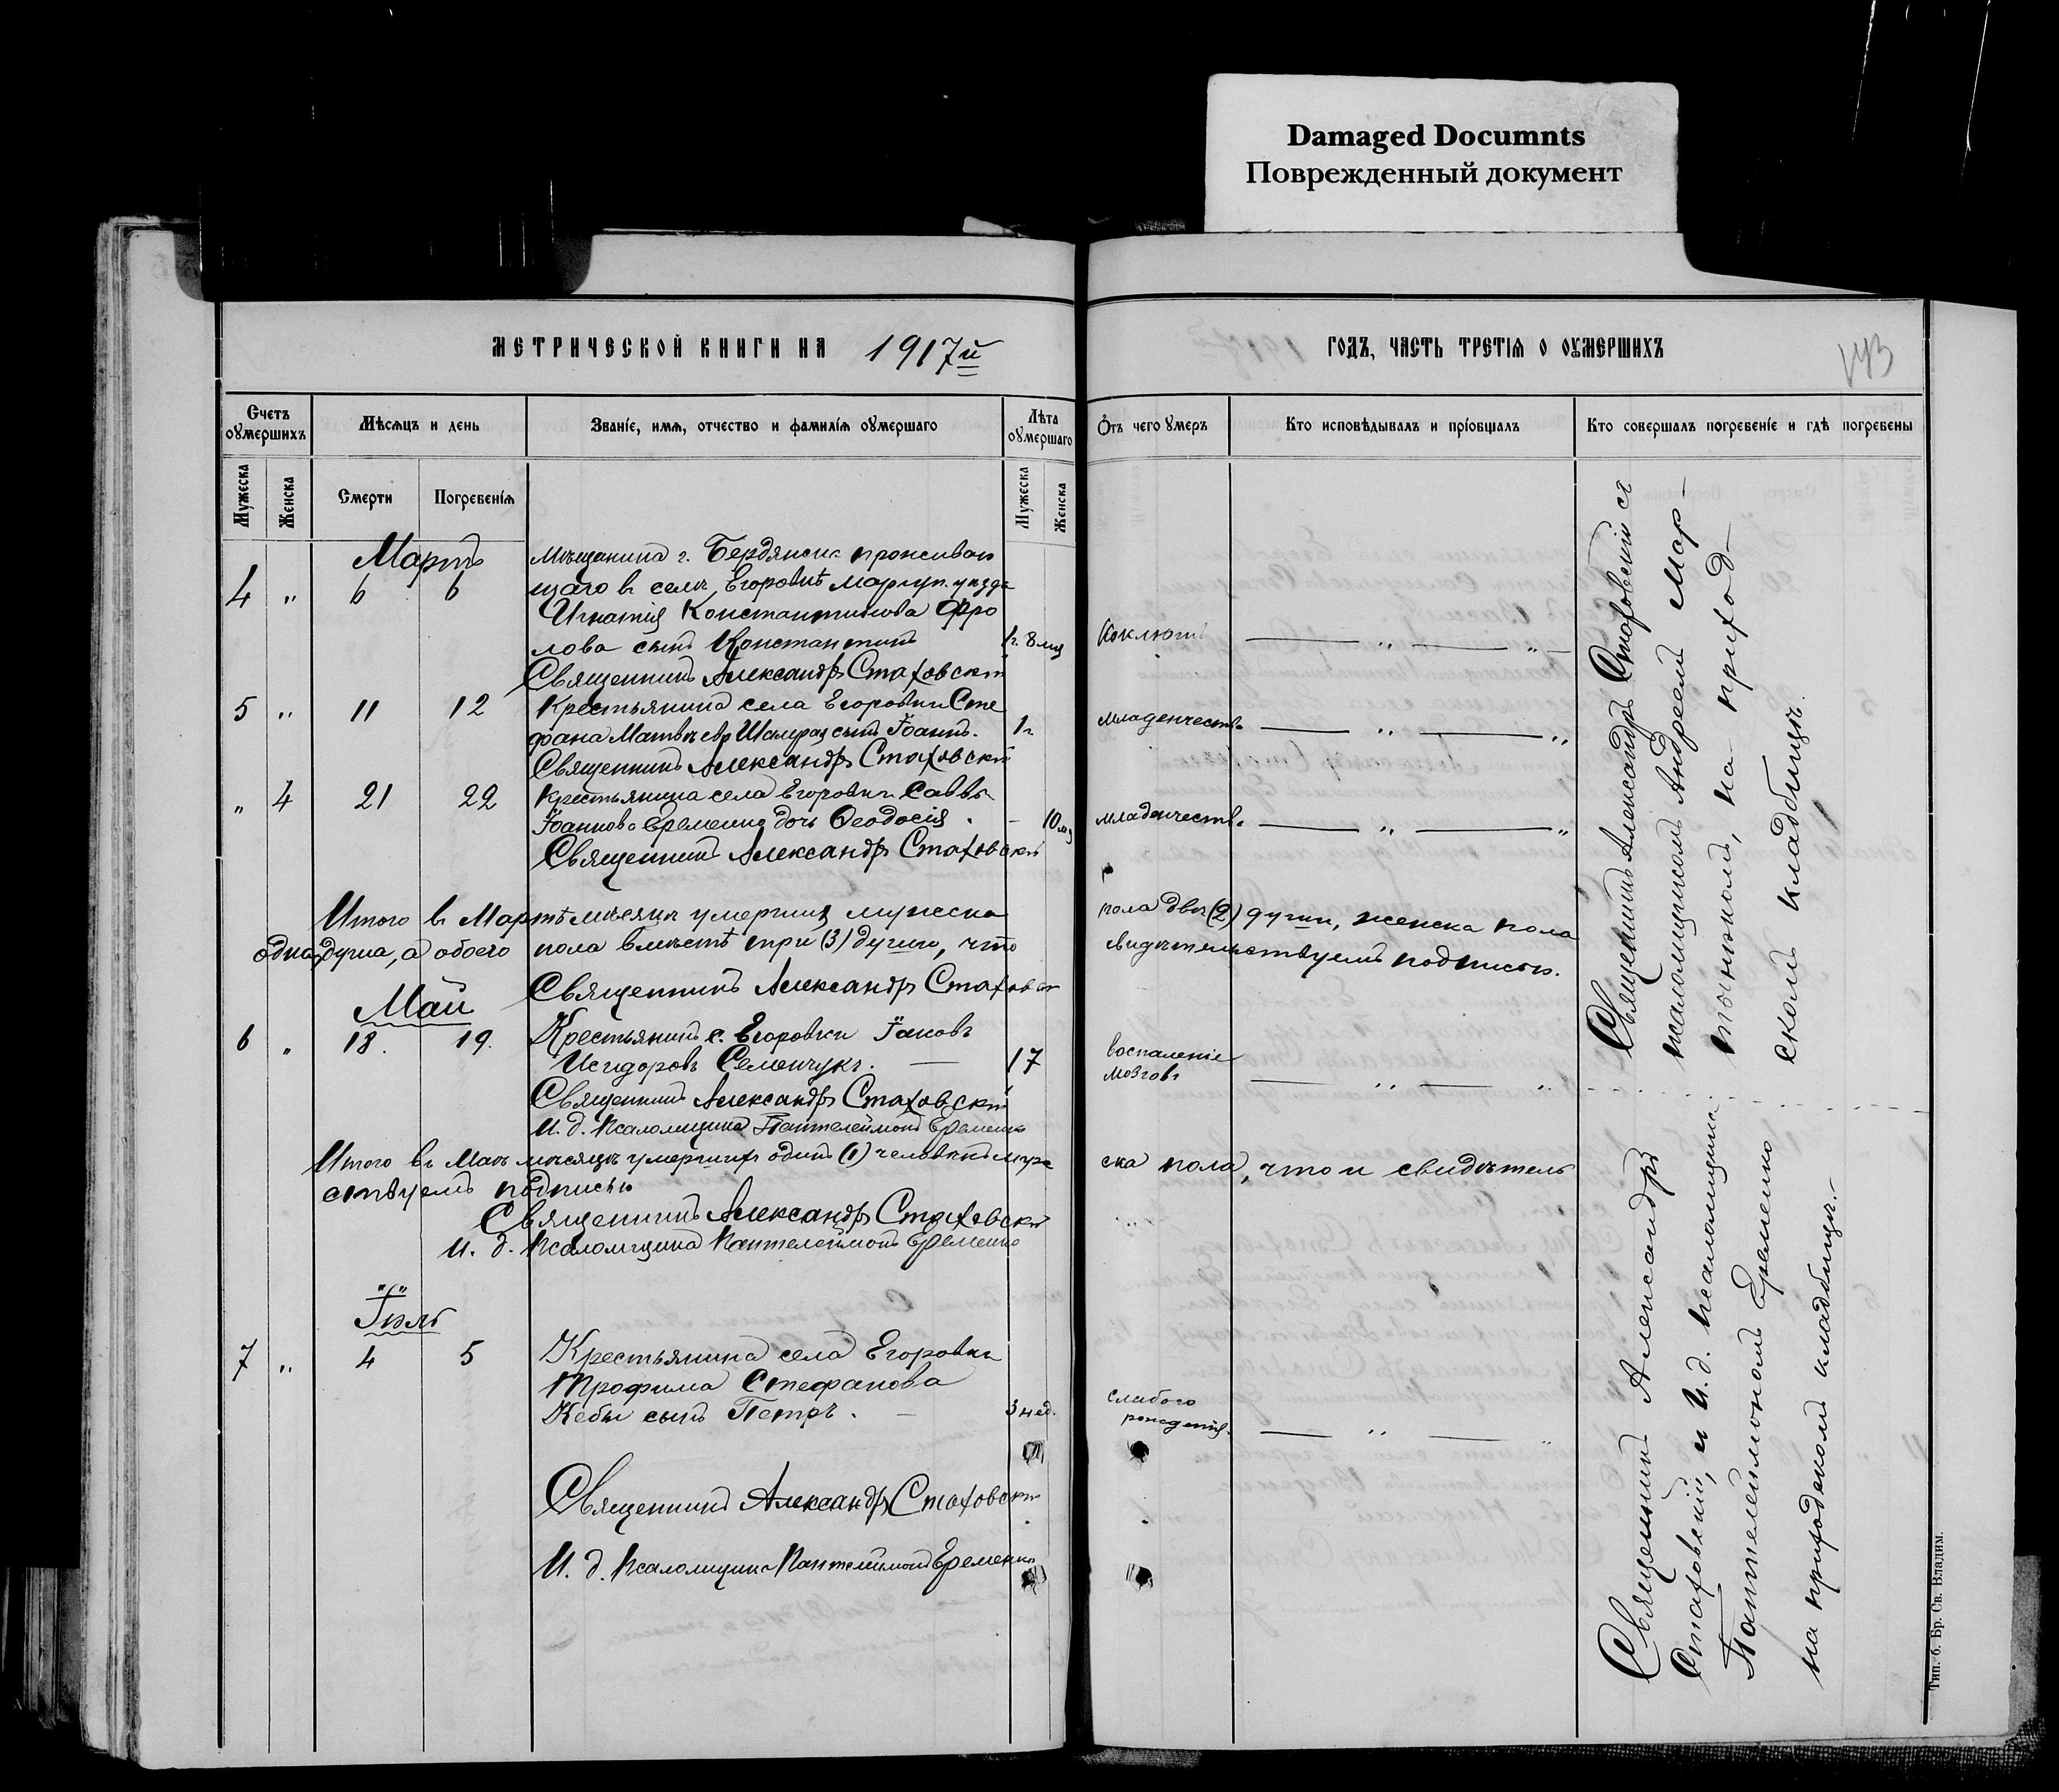 Damaged Documnts
Поврежденный документ
МЕТРИЧЕСКОЙ КНИГИ НА 1917й
ГОДЪ, ЧАСТЬ ТРЕТІЯ О ОУМЕРШИХЪ
143
Счетъ оумершихъ
Мѣсяцъ и день
Званіе, имя, отчество и фамилія оумершаго
Лѣта оумершаго
Отъ чего умеръ
Кто исповѣдывалъ и пріобщалъ
Кто совершалъ погребеніе и гдѣ погребены
Мужеска
Женска
Смерти
Погребенія
Мужеска
Женска
Мартъ
Мѣщанина г. Бердянска проживаю
4 " 6 6 щаго въ селѣ Егоровкѣ Маріуп. уѣзда
Игнатія Константинова Фро
лова сынъ Константинъ 1г. 8 мц Коклюшъ — " — "
Священникъ Александръ Стаховскій
5 " 11 12 Крестьянина села Егоровки Сте
фана Матвѣева сынъ Іоаннъ. 1г младенчества — " — "
Священникъ Александръ Стаховскій
" 4 21 22 Крестьянина села Егоровки Саввы
Іоаннова Еременко дочь Ѳеодосія. – 10 мц младенчества — " — "
Священникъ Александръ Стаховскій
Итого въ Мартѣ мѣсяцѣ умершихъ мужеска пола двѣ (2) души, женска пола
одна душа, а обоего пола вмѣстѣ три (3) души, что свидѣтельствуемъ подписью.
Священникъ Александръ Стаховскій
Май
6 " 18. 19. Крестьянинъ с. Егоровки Іаковъ
Исидоровъ Семенчукъ. — 17 воспаленіе
мозговъ — " — "
Священникъ Александръ Стаховскій
И. д. Псаломщика Пантелеимонъ Еременко
Итого въ Маѣ мѣсяцѣ умершихъ одинъ (1) человѣкъ муже ска пола, что и свидѣтель
ствуемъ подписью
Священникъ Александръ Стаховскій
И. д. Псаломщика Пантелеимонъ Еременко
Іюль
7 " 4 5 Крестьянина села Егоровки
Трофима Стефанова
Кебы сынъ Петръ. — 3 нед. слабого
рожденія. — " — "
Священникъ Александръ Стаховскій
И. д. Псаломщика Пантелеимонъ Еременко
Священникъ Александръ Стаховскій съ
псаломщикомъ Андреемъ Мар–
тыненкомъ, на приход–
скомъ кладбищѣ.
Священникъ Александръ
Стаховскій, и И. д. псаломщика
Пантелеимонъ Еременко
на приходскомъ кладбищѣ.–
Тип. б. Бр. Св. Владим.